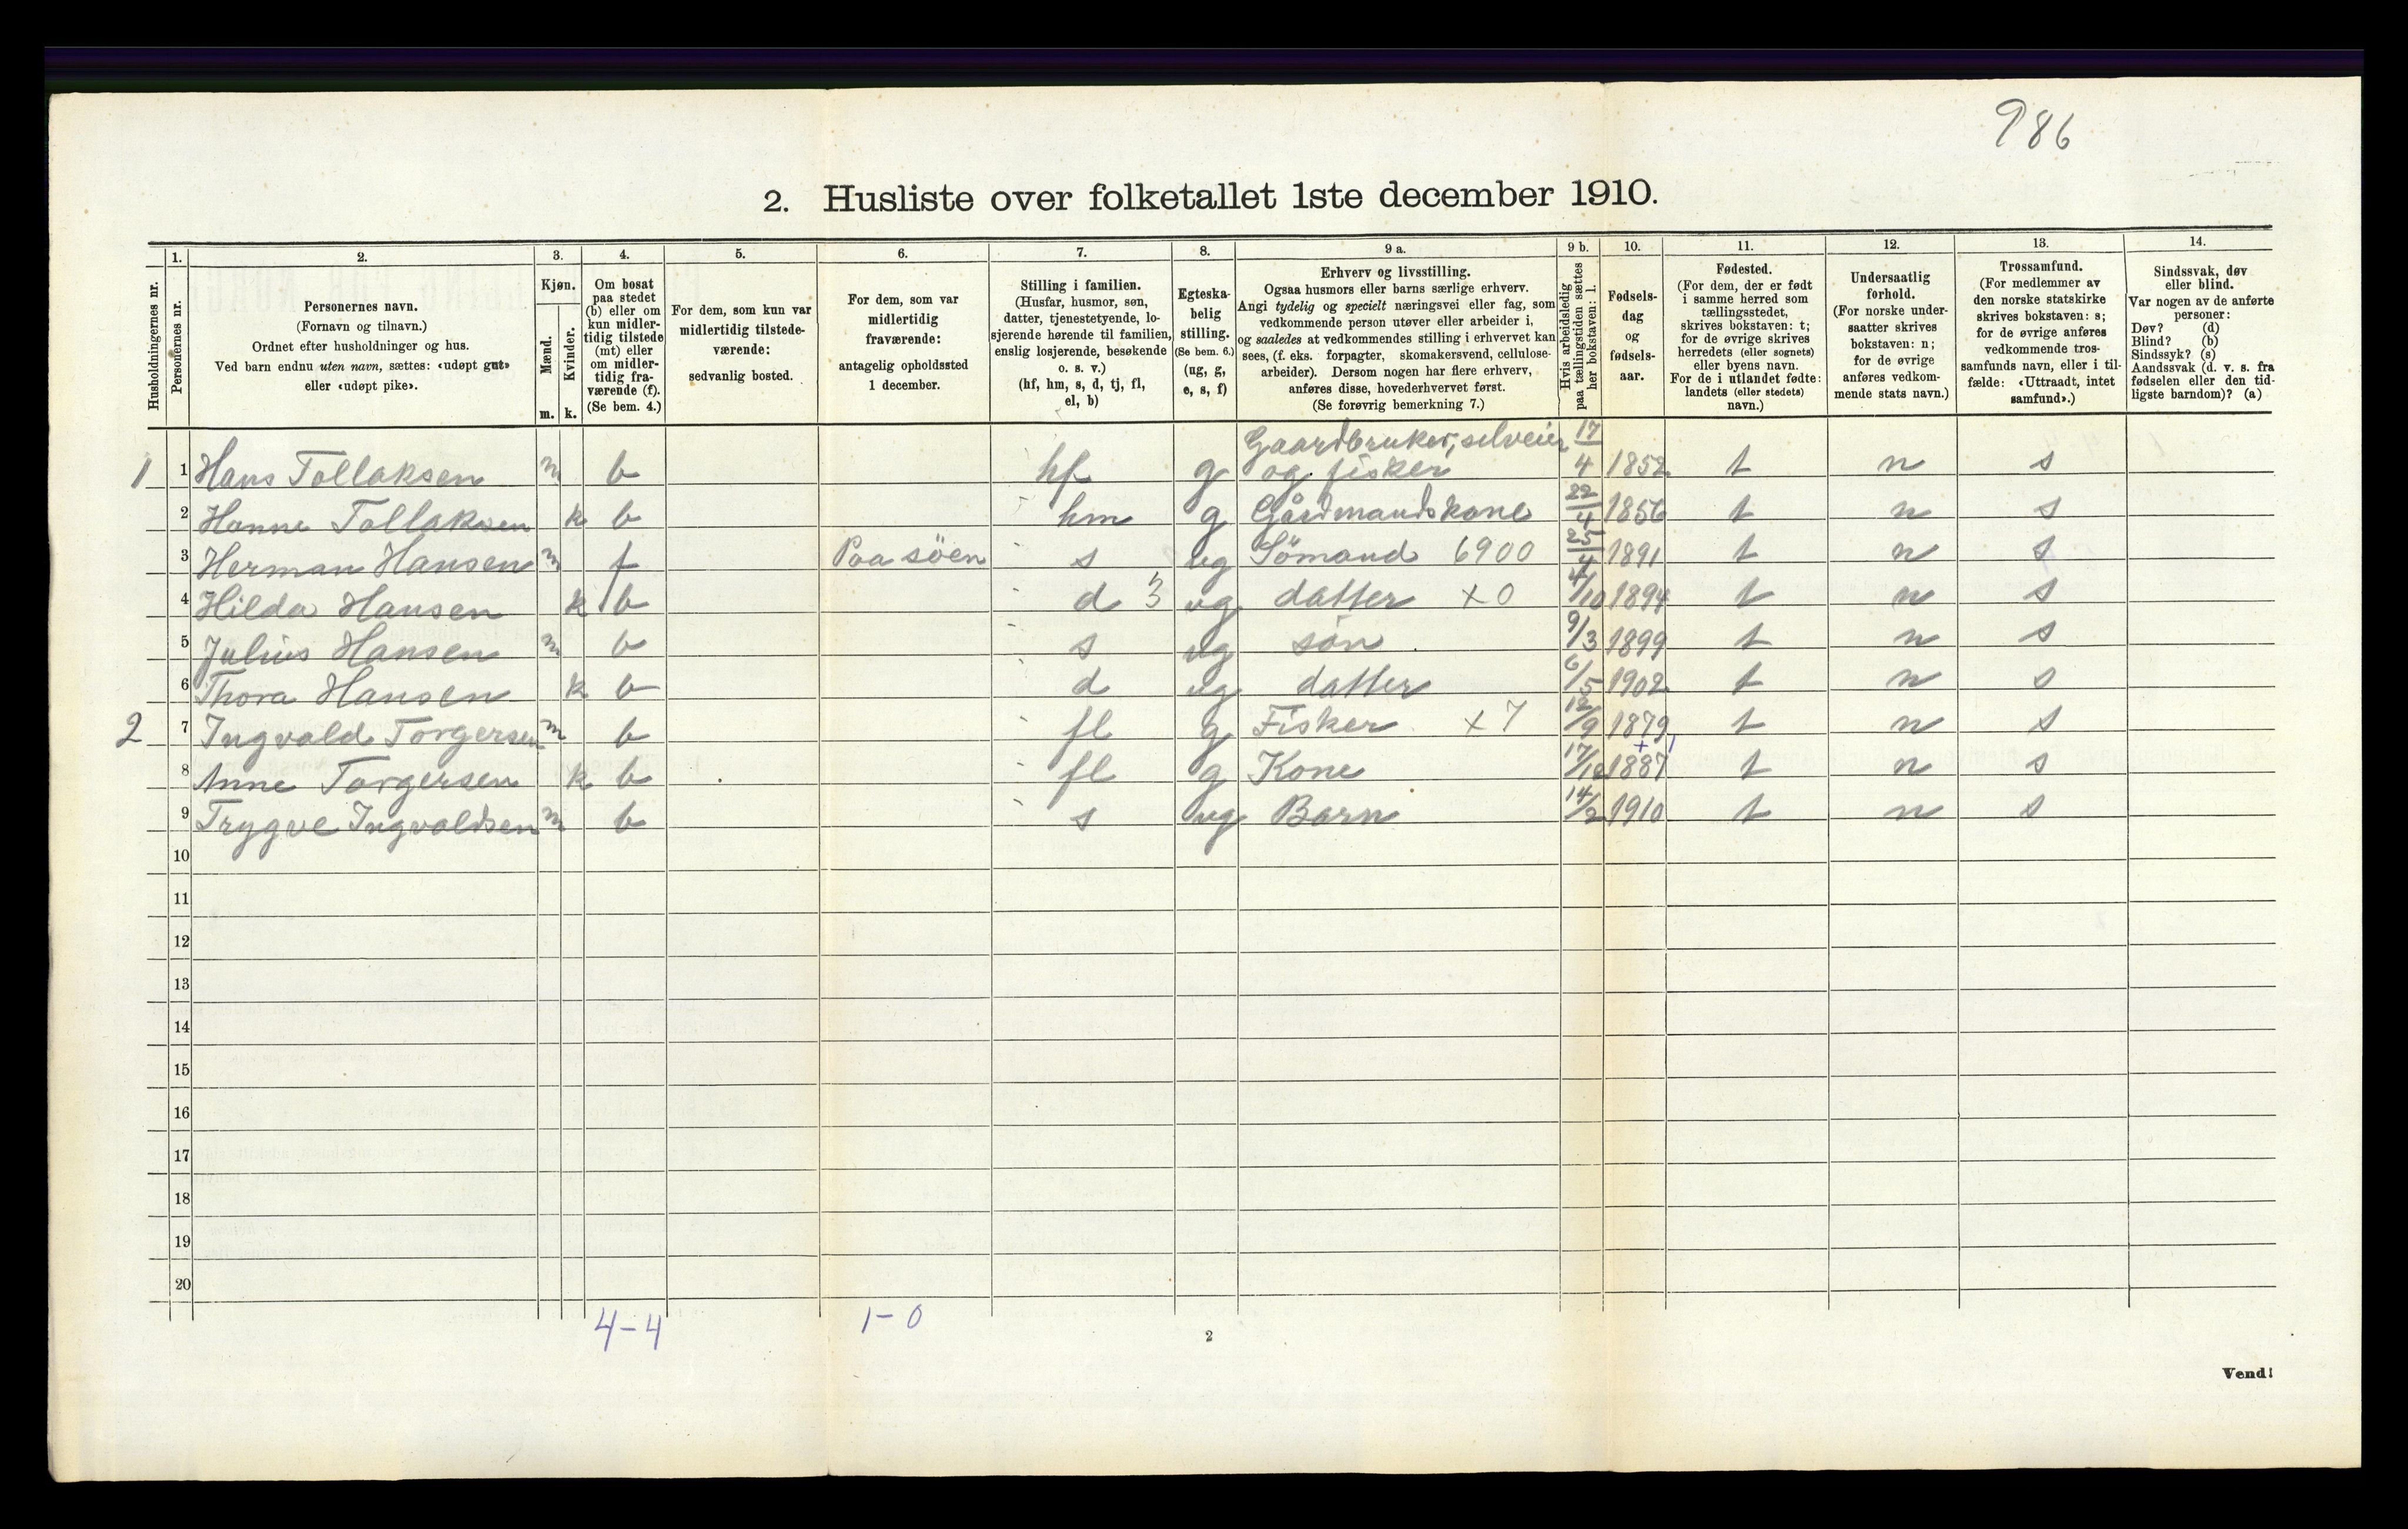 986
2. Husliste over folketallet 1ste december 1910.
1. 2. 3. 4. 5. 6. 7. 8. 9 a. 9 b. 10. 11. 12. 13. 14.
Husholdningernes nr.
Personernes nr.
Personernes navn.
(Fornavn og tilnavn.)
Ordnet efter husholdninger og hus.
Ved barn endnu uten navn, sættes: «udøpt gut»
eller «udøpt pike».
Kjøn.
Mænd.
Kvinder.
m. k.
Om bosat
paa stedet
(b) eller om
kun midler-
tidig tilstede
(mt) eller
om midler-
tidig fra-
værende (f).
(Se bem. 4.)
For dem, som kun var
midlertidig tilstede-
værende:
sedvanlig bosted.
For dem, som var
midlertidig
fraværende:
antagelig opholdssted
1 december.
Stilling i familien.
(Husfar, husmor, søn,
datter, tjenestetyende, lo-
sjerende hørende til familien,
enslig losjerende, besøkende
o. s. v.)
(hf, hm, s, d, tj, fl,
el, b)
Egteska-
belig
stilling.
(Se bem. 6.)
(ug, g,
e, s, f)
Erhverv og livsstilling.
Ogsaa husmors eller barns særlige erhverv.
Angi tydelig og specielt næringsvei eller fag, som
vedkommende person utøver eller arbeider i,
og saaledes at vedkommendes stilling i erhvervet kan
sees, (f. eks. forpagter, skomakersvend, cellulose-
arbeider). Dersom nogen har flere erhverv,
anføres disse, hovederhvervet først.
(Se forøvrig bemerkning 7.)
Hvis arbeidsledig
paa tællingstiden sættes
her bokstaven: l.
Fødsels-
dag
og
fødsels-
aar.
Fødested.
(For dem, der er født
i samme herred som
tællingsstedet,
skrives bokstaven: t;
for de øvrige skrives
herredets (eller sognets)
eller byens navn.
For de i utlandet fødte:
landets (eller stedets)
navn.)
Undersaatlig
forhold.
(For norske under-
saatter skrives
bokstaven: n;
for de øvrige
anføres vedkom-
mende stats navn.)
Trossamfund.
(For medlemmer av
den norske statskirke
skrives bokstaven: s;
for de øvrige anføres
vedkommende tros-
samfunds navn, eller i til-
fælde: «Uttraadt, intet
samfund».)
Sindssvak, døv
eller blind.
Var nogen av de anførte
personer:
Døv? (d)
Blind? (b)
Sindssyk? (s)
Aandssvak (d. v. s. fra
fødselen eller den tid-
ligste barndom)? (a)
Gaardbruker, selveier
1 1 Hans Tollaksen m b hf g og fisker 17/4 1852 t n s
2 Hanne Tollaksen k b hm g Gårdmandskone 22/4 1856 t n s
3 Herman Hansen m f Paa søen s ug Sömand 6900 25/4 1891 t n s
4 Hilda Hansen k b d 3 ug datter x0 4/10 1894 t n s
5 Julius Hansen m b s ug sön 9/3 1899 t n s
6 Thora Hansen k b d ug datter 6/5 1902 t n s
2 7 Ingvald Torgersen m b fl g Fisker x7 12/9 1879 t n s
8 Anne Torgersen k b fl g Kone 17/12 1887 t n s
9 Trygve Ingvaldsen m b s ug Barn 14/2 1910 t n s
10
11
12
13
14
15
16
17
18
19
20
4-4 1-0
2
Vend!